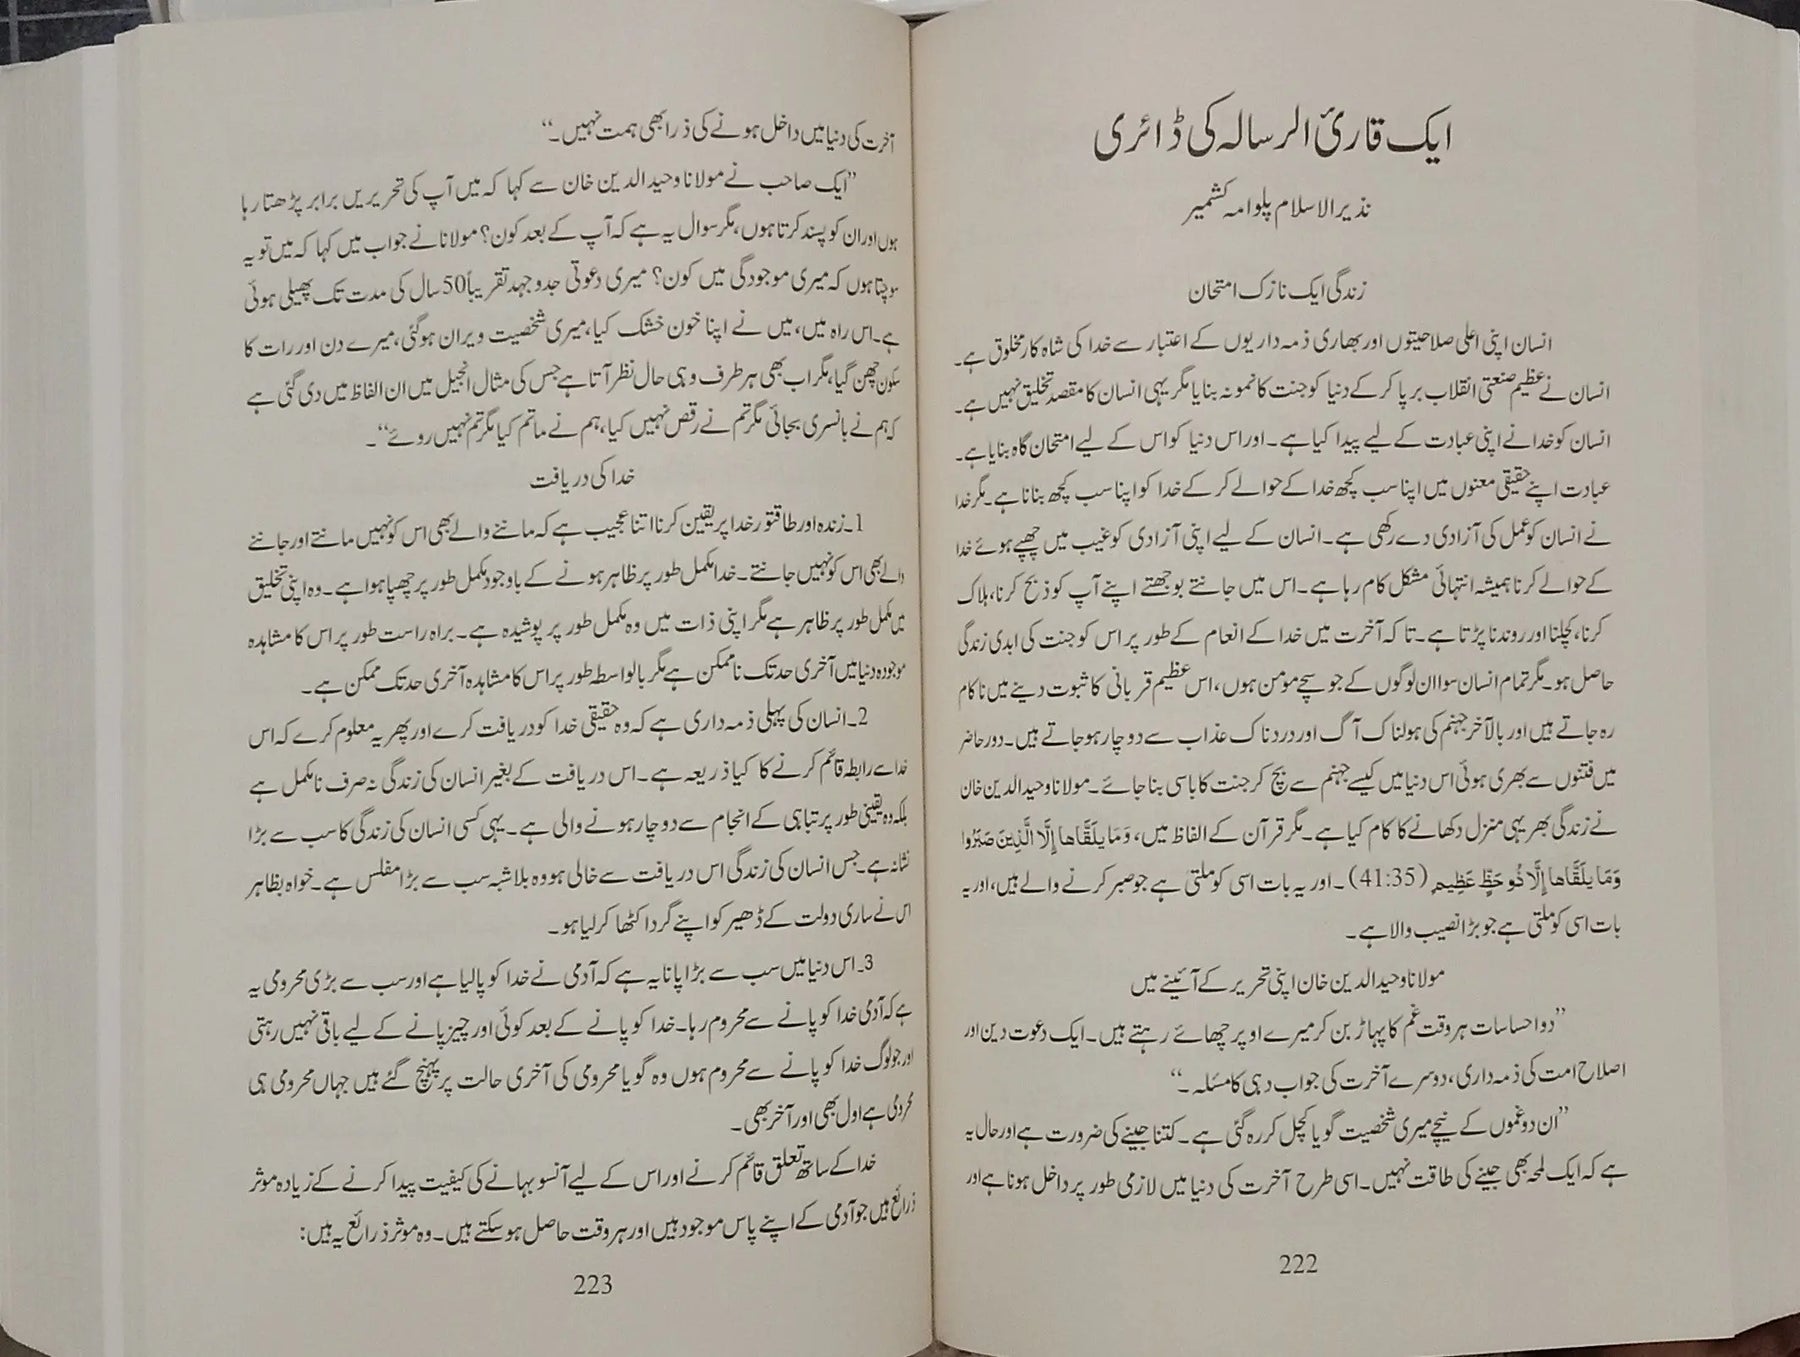 ایک قاریٔ الرسالہ کی ڈائری
نذیر الاسلام پلوامہ کشمیر
زندگی ایک نازک امتحان
انسان اپنی اعلیٰ صلاحیتوں اور بھاری ذمہ داریوں کے اعتبار سے خدا کی شاہ کار مخلوق ہے۔
انسان نے عظیم صنعتی انقلاب برپا کرکے دنیا کو جنت کا نمونہ بنایا مگر یہی انسان کا مقصد تخلیق نہیں ہے۔
انسان کو خدا نے اپنی عبادت کے لیے پیدا کیا ہے۔ اور اس دنیا کو اس کے لیے امتحان گاہ بنایا ہے۔
عبادت اپنے حقیقی معنوں میں اپنا سب کچھ خدا کے حوالے کرکے خدا کو اپنا سب کچھ بنانا ہے۔ مگر خدا
نے انسان کو عمل کی آزادی دے رکھی ہے۔ انسان کے لیے اپنی آزادی کو غیب میں چھپے ہوئے خدا
کے حوالے کرنا ہمیشہ انتہائی مشکل کام رہا ہے۔ اس میں جانتے بوجھتے اپنے آپ کو ذبح کرنا، ہلاک
کرنا، کچلنا اور روندنا پڑتا ہے۔ تاکہ آخرت میں خدا کے انعام کے طور پر اس کو جنت کی ابدی زندگی
حاصل ہو۔ مگر تمام انسان سوا ان لوگوں کے جو سچے مومن ہوں، اس عظیم قربانی کا ثبوت دینے میں ناکام
رہ جاتے ہیں اور بالآخر جہنم کی ہولناک آگ اور دردناک عذاب سے دوچار ہو جاتے ہیں۔ دور حاضر
میں فتنوں سے بھری ہوئی اس دنیا میں کیسے جہنم سے بچ کر جنت کا باسی بنا جائے۔ مولانا وحید الدین خان
نے زندگی بھر یہی منزل دکھانے کا کام کیا ہے۔ مگر قرآن کے الفاظ میں، وَمَا یلَقَّاھا إِلَّا الَّذِینَ صَبَرُوا
وَمَا یلَقَّاھا إِلَّا ذُو حَظٍّ عَظِیم (41:35)۔ اور یہ بات اسی کو ملتی ہے جو صبر کرنے والے ہیں، اور یہ
بات اسی کو ملتی ہے جو بڑا نصیب والا ہے۔
مولانا وحید الدین خان اپنی تحریر کے آئینے میں
”دو احساسات ہر وقت غم کا پہاڑ بن کر میرے اوپر چھائے رہتے ہیں۔ ایک دعوت دین اور
اصلاح امت کی ذمہ داری، دوسرے آخرت کی جواب دہی کا مسئلہ۔“
”ان دو غموں کے نیچے میری شخصیت گویا کچل کر رہ گئی ہے۔ کتنا جینے کی ضرورت ہے اور حال یہ
ہے کہ ایک لمحہ بھی جینے کی طاقت نہیں۔ اسی طرح آخرت کی دنیا میں لازمی طور پر داخل ہونا ہے اور
222
آخرت کی دنیا میں داخل ہونے کی ذرا بھی ہمت نہیں۔“
”ایک صاحب نے مولانا وحید الدین خان سے کہا کہ میں آپ کی تحریریں برابر پڑھتا رہا
ہوں اور ان کو پسند کرتا ہوں، مگر سوال یہ ہے کہ آپ کے بعد کون؟ مولانا نے جواب میں کہا کہ میں تو یہ
سوچتا ہوں کہ میری موجودگی میں کون؟ میری دعوتی جدوجہد تقریباً 50 سال کی مدت تک پھیلی ہوئی
ہے۔ اس راہ میں، میں نے اپنا خون خشک کیا، میری شخصیت ویران ہوگئی، میرے دن اور رات کا
سکون چھن گیا، مگر اب بھی ہر طرف وہی حال نظر آتا ہے جس کی مثال انجیل میں ان الفاظ میں دی گئی ہے
کہ ہم نے بانسری بجائی مگر تم نے رقص نہیں کیا، ہم نے ماتم کیا مگر تم نہیں روئے“۔
خدا کی دریافت
1۔ زندہ اور طاقتور خدا پر یقین کرنا اتنا عجیب ہے کہ ماننے والے بھی اس کو نہیں مانتے اور جاننے
والے بھی اس کو نہیں جانتے۔ خدا مکمل طور پر ظاہر ہونے کے باوجود مکمل طور پر چھپا ہوا ہے۔ وہ اپنی تخلیق
میں مکمل طور پر ظاہر ہے مگر اپنی ذات میں وہ مکمل طور پر پوشیدہ ہے۔ براہ راست طور پر اس کا مشاہدہ
موجودہ دنیا میں آخری حد تک ناممکن ہے مگر بالواسطہ طور پر اس کا مشاہدہ آخری حد تک ممکن ہے۔
2۔ انسان کی پہلی ذمہ داری ہے کہ وہ حقیقی خدا کو دریافت کرے اور پھر یہ معلوم کرے کہ اس
خدا سے رابطہ قائم کرنے کا کیا ذریعہ ہے۔ اس دریافت کے بغیر انسان کی زندگی نہ صرف نامکمل ہے
بلکہ وہ یقینی طور پر تباہی کے انجام سے دوچار ہونے والی ہے۔ یہی کسی انسان کی زندگی کا سب سے بڑا
نشانہ ہے۔ جس انسان کی زندگی اس دریافت سے خالی ہو وہ بلاشبہ سب سے بڑا مفلس ہے۔ خواہ بظاہر
اس نے ساری دولت کے ڈھیر کو اپنے گرد اکٹھا کر لیا ہو۔
3۔ اس دنیا میں سب سے بڑا پانا یہ ہے کہ آدمی نے خدا کو پالیا ہے اور سب سے بڑی محرومی یہ
ہے کہ آدمی خدا کو پانے سے محروم رہا۔ خدا کو پانے کے بعد کوئی اور چیز پانے کے لیے باقی نہیں رہتی
اور جو لوگ خدا کو پانے سے محروم ہوں وہ گویا محرومی کی آخری حالت پر پہنچ گئے ہیں جہاں محرومی ہی
محرومی ہے اول بھی اور آخر بھی۔
خدا کے ساتھ تعلق قائم کرنے اور اس کے لیے آنسو بہانے کی کیفیت پیدا کرنے کے زیادہ موثر
ذرائع ہیں جو آدمی کے اپنے پاس موجود ہیں اور ہر وقت حاصل ہو سکتے ہیں۔ وہ موثر ذرائع یہ ہیں:
223